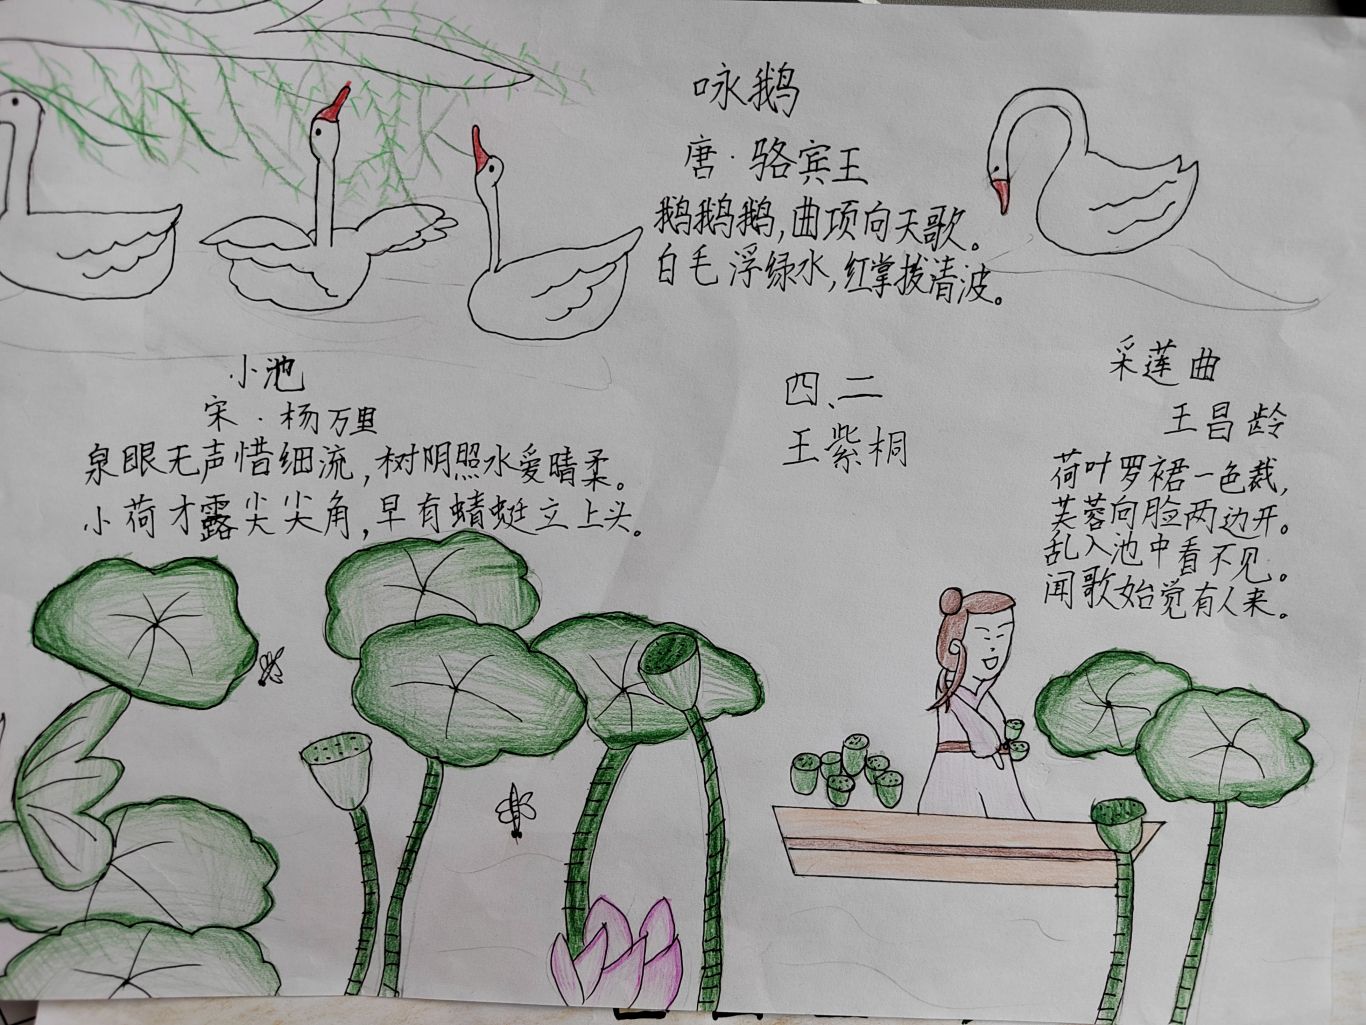 咏鹅
唐·骆宾王
鹅鹅鹅,曲项向天歌。
白毛浮绿水,红掌拨清波。
小池
宋·杨万里
泉眼无声惜细流,树阴照水爱晴柔。
小荷才露尖尖角,早有蜻蜓立上头。
四、二
王紫桐
采莲曲
王昌龄
荷叶罗裙一色裁,
芙蓉向脸两边开。
乱入池中看不见。
闻歌始觉有人来。